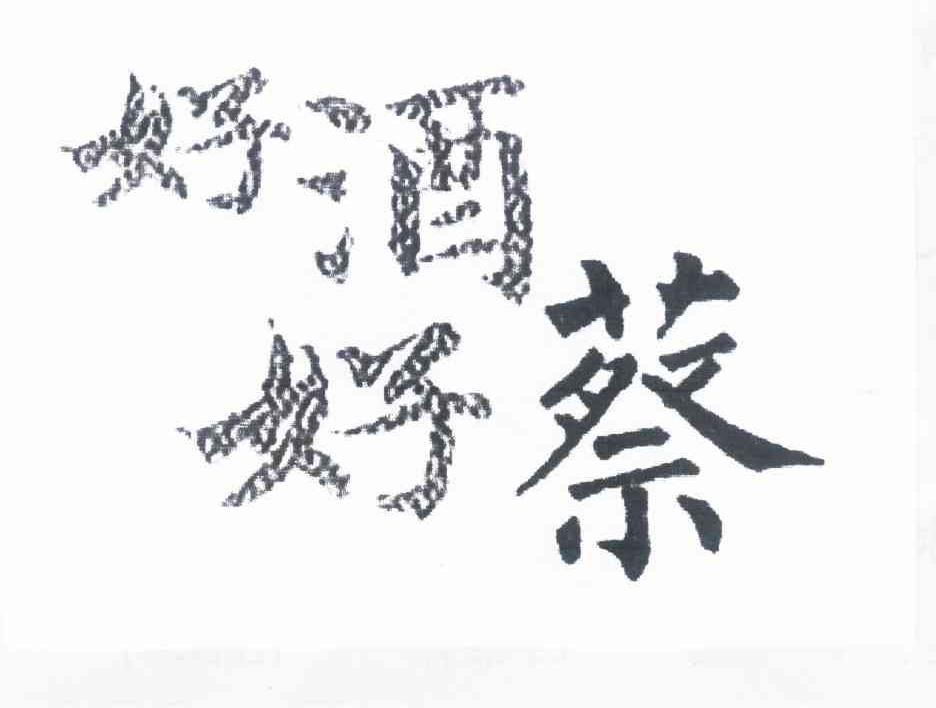 好酒
好蔡